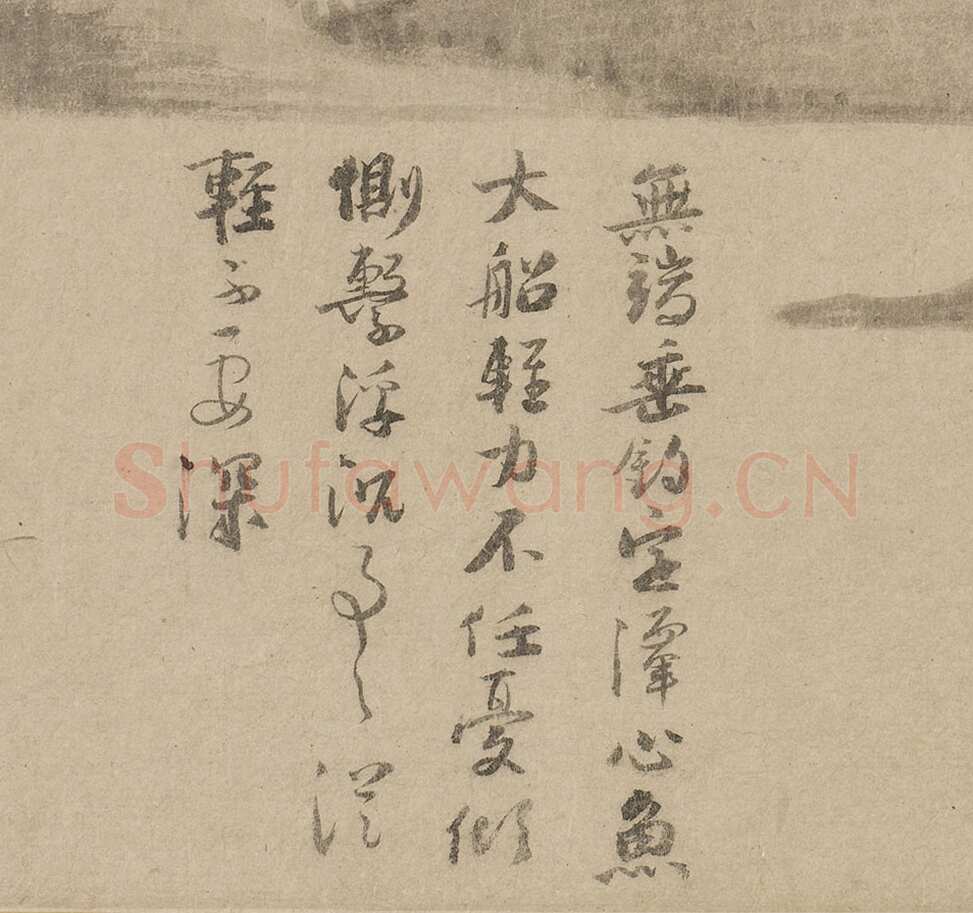 無端垂釣定潭心魚
大船輕力不任憂傾
惻繫浮沉事々從
輕不要深
Shufawang.CN